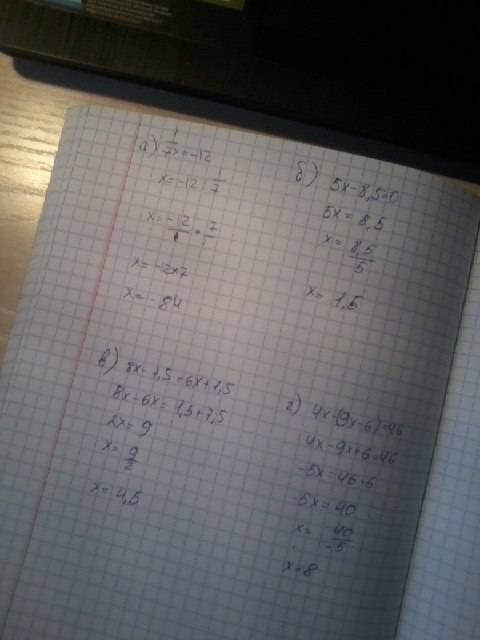 а) 1/7x=-12
x=-12:1/7
x=-12/1*7/1
x=-12*7
x=-84
б) 5x-8,5=0
5x=8,5
x=8,5/5
x=1,5
в) 8x-1,5=6x+7,5
8x-6x=1,5+7,5
2x=9
x=9/2
x=4,5
г) 4x-(9x-6)=46
4x-9x+6=46
-5x=46-6
-5x=40
x=40/-5
x=-8